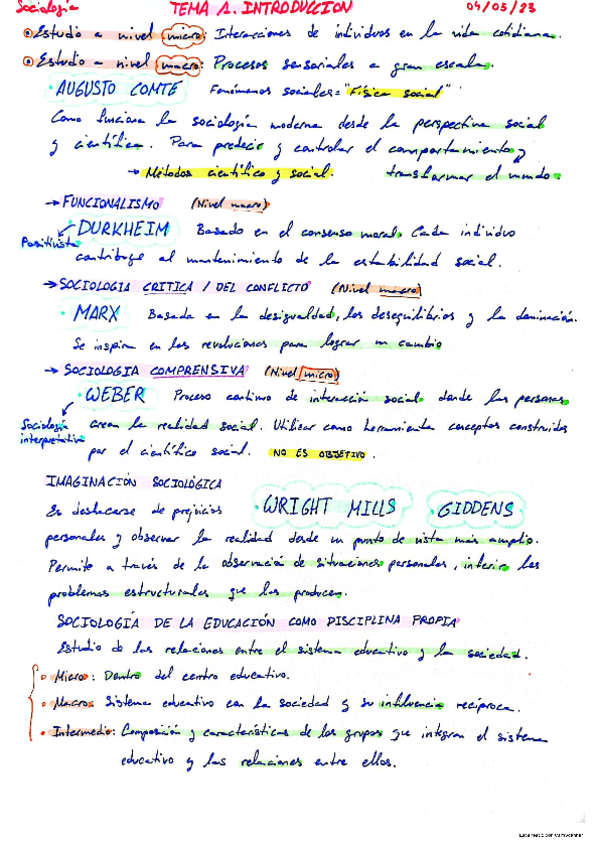 Sociología TEMA 1. INTRODUCCION 04/05/23
Estudio a nivel micro: Interacciones de individuos en la vida cotidiana.
Estudio a nivel macro: Procesos sensoriales a gran escala.
AUGUSTO COMTE Fenómenos sociales = "Física social"
Como funciona la sociología moderna desde la perspectiva social
y científica. Para predecir y controlar el comportamiento y
→ Métodos científico y social. transformar el mundo.
→ FUNCIONALISMO (Nivel macro)
DURKHEIM Basado en el consenso moral. Cada individuo
Positivista
contribuye al mantenimiento de la estabilidad social.
→ SOCIOLOGIA CRITICA / DEL CONFLICTO (Nivel macro)
MARX Basada en la desigualdad, los desequilibrios y la dominación.
Se inspira en las revoluciones para lograr un cambio
→ SOCIOLOGIA COMPRENSIVA (Nivel micro)
WEBER Proceso continuo de interacción social donde las personas
Sociología interpretativa
crean la realidad social. Utilizar como herramienta conceptos construidos
por el científico social. NO ES OBJETIVO.
IMAGINACIÓN SOCIOLÓGICA
WRIGHT MILLS GIDDENS
Es deslacarse de prejuicios
personales y observar la realidad desde un punto de vista más amplio.
Permite a través de la observación de situaciones personales, inferir los
problemas estructurales que los producen.
SOCIOLOGÍA DE LA EDUCACIÓN COMO DISCIPLINA PROPIA
Estudio de las relaciones entre el sistema educativo y la sociedad.
Micro: Dentro del centro educativo.
Macro: Sistema educativo con la sociedad y su influencia recíproca.
Intermedio: Composición y características de los grupos que integran el sistema
educativo y las relaciones entre ellos.